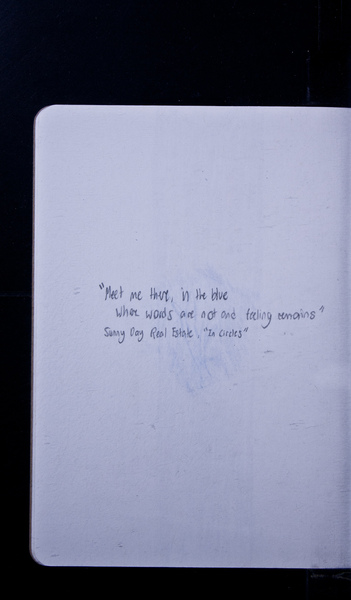 "Meet me there, in the blue
Where words are not and feeling remains"
Sunny Day Real Estate, "In Circles"